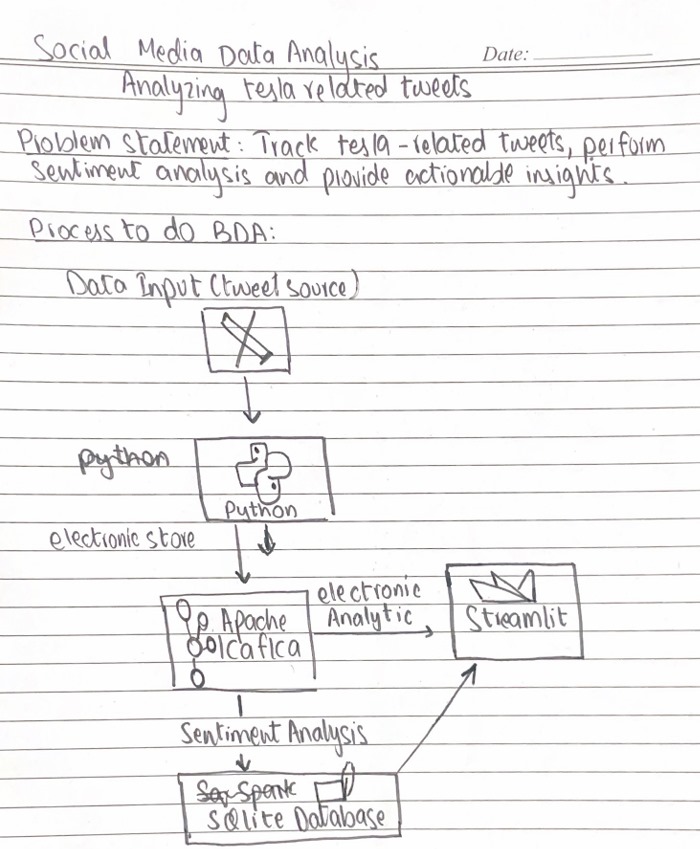 Social Media Data Analysis
Date:
Analyzing tesla related tweets
Problem Statement: Track tesla-related tweets, perform
Sentiment analysis and provide actionable insights.
Process to do BDA:
Data Input (tweet source)
X
python
Python
electronic store
electronic
Analytic
Apache
Kafka
Streamlit
Sentiment Analysis
Spark
SQlite Database